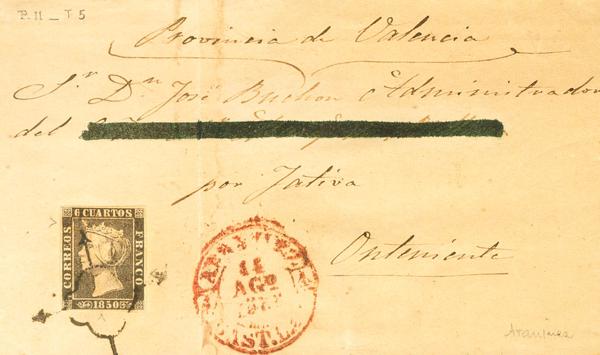 P.II _ T 5
Provincia de Valencia
Sr. Dn. José Buchon Administrador
del
por Jativa
Onteniente
6 CUARTOS
CORREOS
FRANCO
1850
11
AGO
CAST.L.
Aranjuez